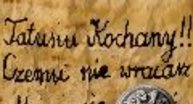 Tatusiu Kochany!!
Czemu nie wracasz